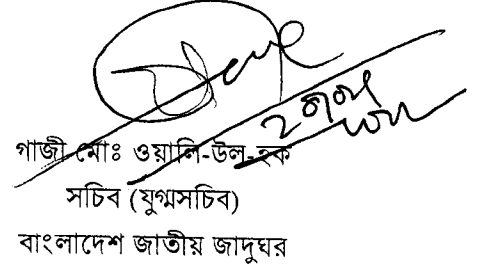 গাজী মোঃ ওয়ালি-উল-হক
সচিব (যুগ্মসচিব)
বাংলাদেশ জাতীয় জাদুঘর